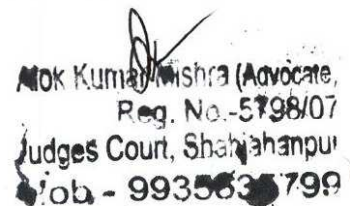 Alok Kumar Mishra (Advocate,
Reg. No.-5798/07
Judges Court, Shahjahanpur
Mob -